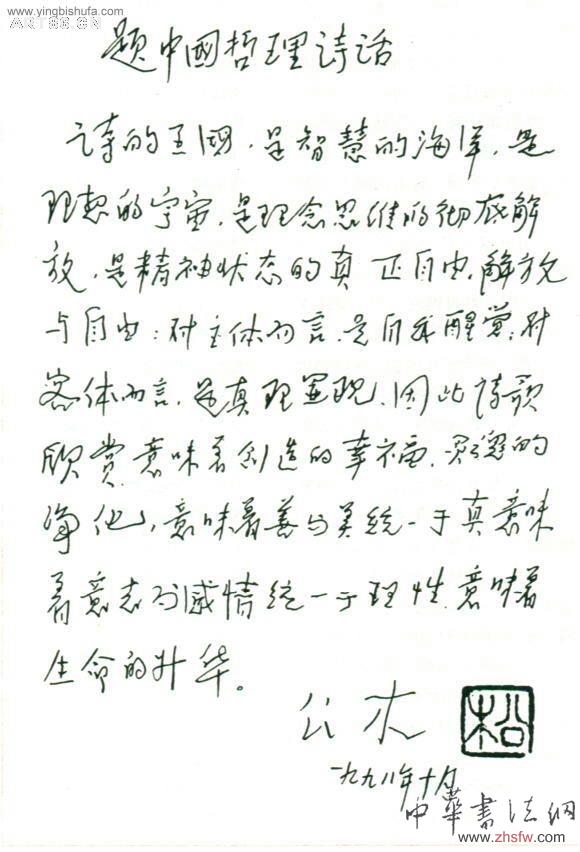 www.yingbishufa.com
ART86.CN
题中國哲理诗话
诗的王國，是智慧的海洋，是
理想的宇宙，是理念思维的彻底解
放，是精神状态的真正自由。解放
与自由：对主体而言，是自我醒觉；对
客体而言，是真理显现。因此诗歌
欣赏意味着创造的幸福，灵魂的
净化，意味着善与美统一于真意味
着意志与感情统一于理性，意味着
生命的升华。
公木
松
一九九八年十月
中華书法網
www.zhsfw.com